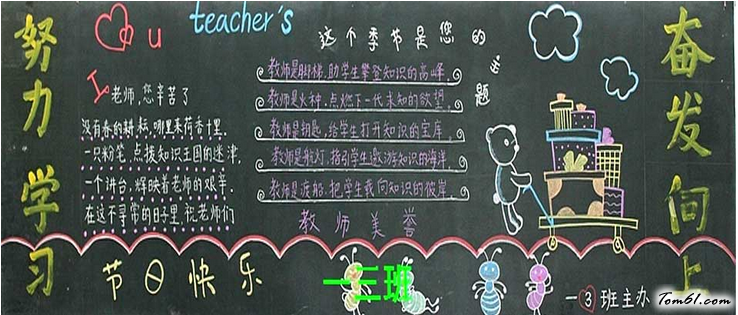 努力学习
u teacher's
这个季节是您的主题
老师,您辛苦了
没有春的耕耘,哪里来荷香十里.
一只粉笔,点拨知识王国的迷津,
一个讲台,辉映着老师的艰辛.
在这不寻常的日子里,祝老师们
节日快乐
教师是脚梯,助学生攀登知识的高峰.
教师是火种,点燃下一代未知的欲望.
教师是钥匙,给学生打开知识的宝库.
教师是航灯,指引学生遨游知识的海洋.
教师是渡船,把学生载向知识的彼岸.
教师美誉
奋发向上
一三班
一3班主办
Tom61.com